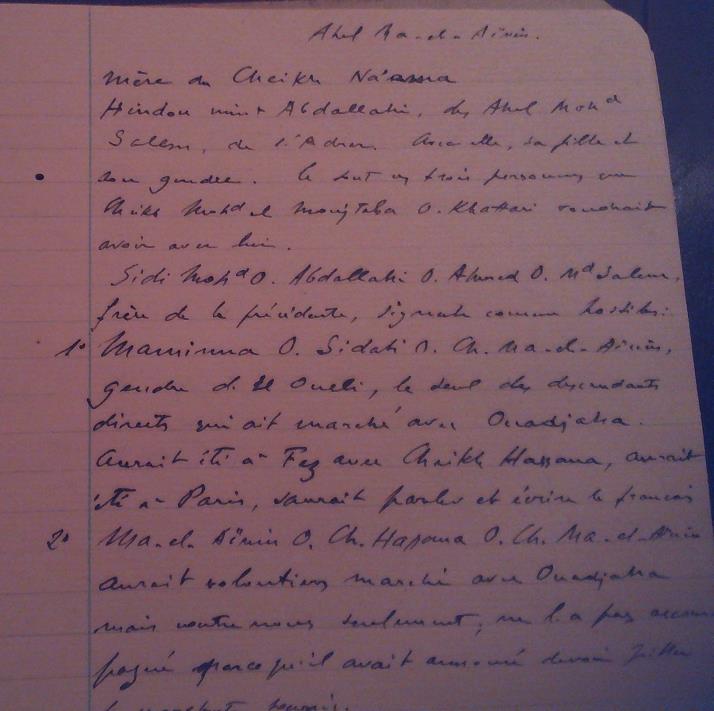 Ahel Ma-el-Aïnin.
Mère du Cheikh Na'ama
Hindou mint Abdallahi, des Ahel Mohd
Salem, de l'Adrar. Avec elle, sa fille et
son gendre. Ce sont les trois personnes que
Cheikh Mohd el Moujtaba O. Khattari voudrait
avoir avec lui.
Sidi Mohd O. Abdallahi O. Ahmed O. Md Salem,
frère de la précédente, signalé comme hostile.
1° Maminna O. Sidati O. Ch. Ma-el-Aïnin,
gendre d'El Oueli, le seul des descendants
directs qui ait marché avec Ouadjaha.
Aurait été à Fez avec Cheikh Hassana, aurait
été à Paris, saurait parler et écrire le français
2° Ma-el-Aïnin O. Ch. Hassana O. Ch. Ma-el-Aïnin
aurait volontiers marché avec Ouadjaha
mais contre nous seulement, ne l'a pas accom-
pagné parce qu'il avait annoncé devoir piller